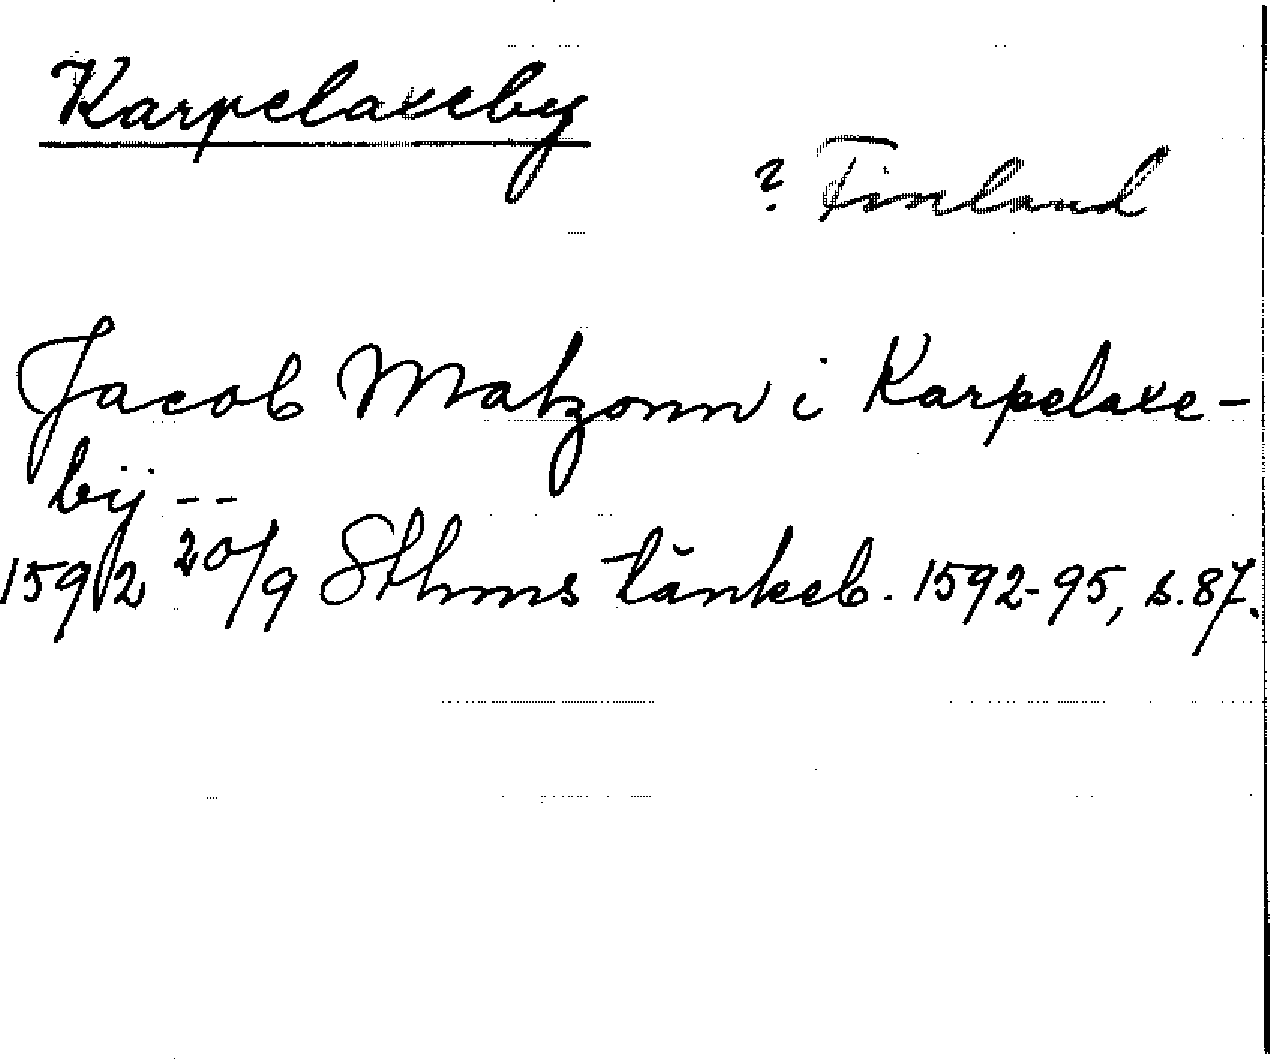 Karpelaxeby
? Finland
Jacob Matzonn i Karpelaxe-
bÿ --
1592 20/9 Sthms tänkeb. 1592-95, s. 87.